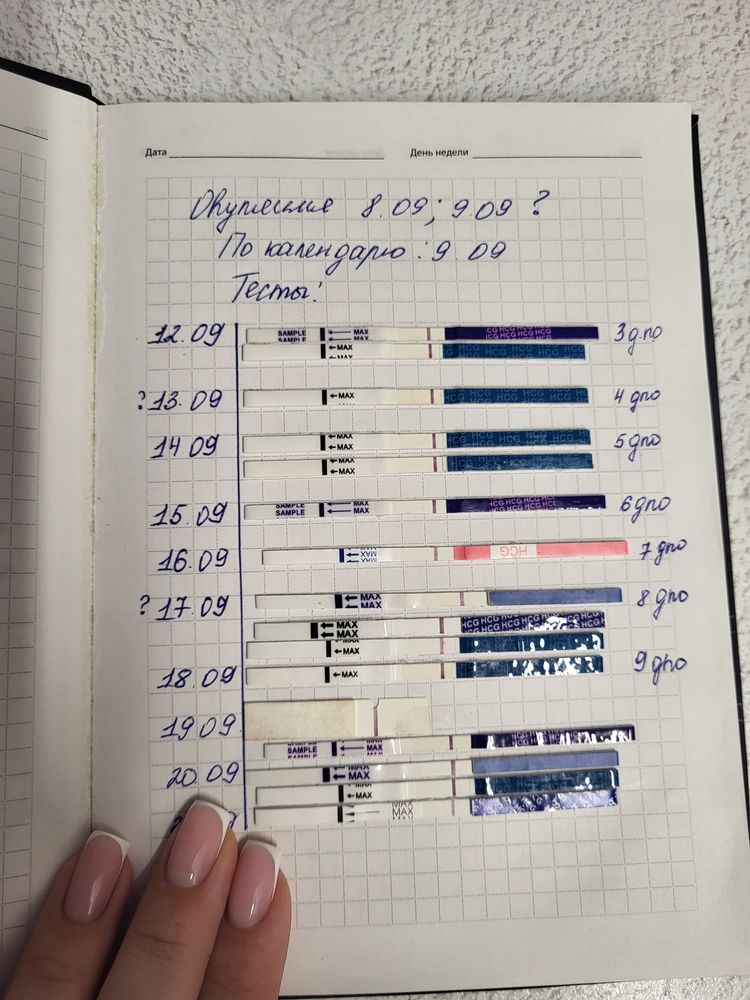 Дата День недели
Овуляция 8.09; 9.09 ?
По календарю: 9.09
Тесты:
12.09 SAMPLE MAX HCG HCG HCG 3 дпо
SAMPLE MAX HCG HCG HCG HCG
MAX HCG HCG HCG HCG
MAX
? 13.09 MAX HCG HCG HCG HCG 4 дпо
14.09 MAX HCG HCG HCG HCG 5 дпо
MAX
MAX HCG HCG HCG HCG
MAX
15.09 SAMPLE MAX HCG HCG HCG 6 дпо
SAMPLE MAX HCG HCG HCG
16.09 MAX HCG 7 дпо
MAX
? 17.09 MAX 8 дпо
MAX
MAX HCG HCG HCG HCG
MAX
MAX
18.09 MAX 9 дпо
19.09
SAMPLE MAX
20.09 MAX
MAX
MAX
MAX
MAX